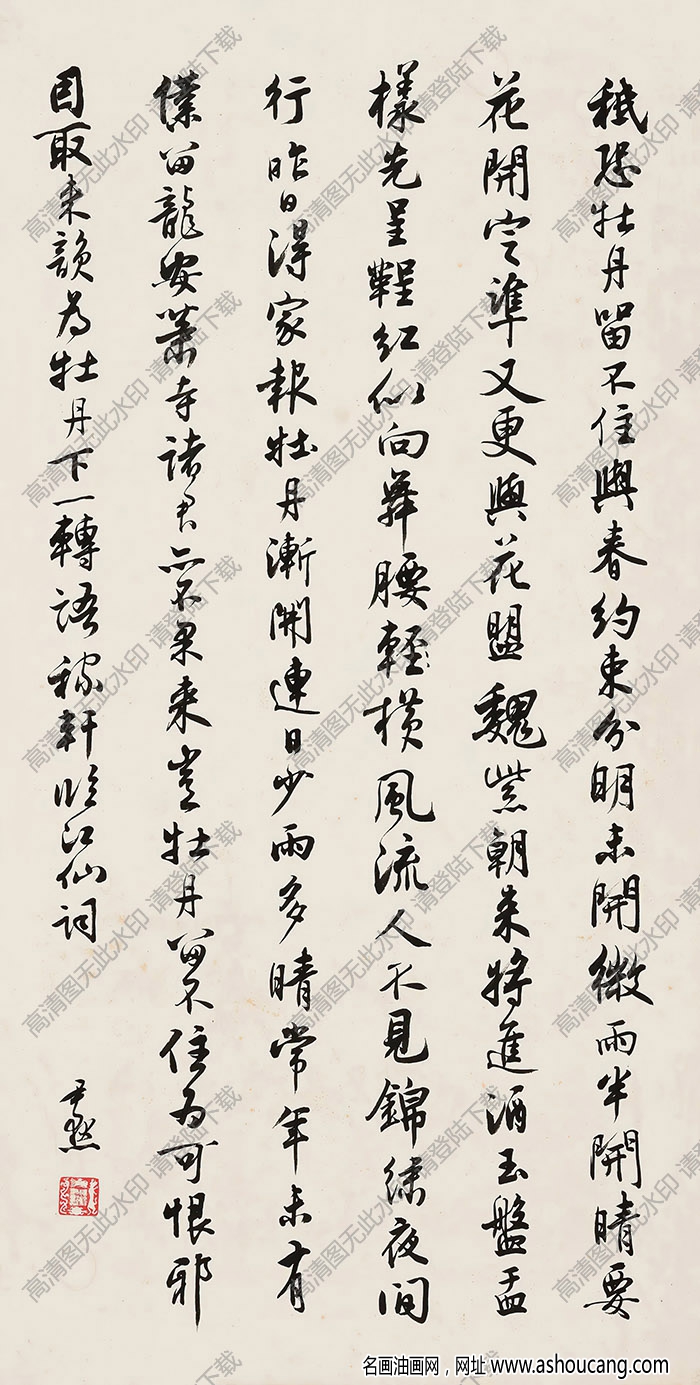 秪恐牡丹留不住與春約束分明未開微雨半開晴要
花開定準又更與花盟魏紫朝來將進酒玉盤盂
樣先呈鞓紅似向舞腰輕橫風流人不見錦繡夜間
行昨日得家報牡丹漸開連日少雨多晴常年未有
僕留龍安蕭寺諸君亦不果來豈牡丹留不住為可恨邪
因取來韻為牡丹下一轉語稼軒臨江仙詞
尹默
高清图无此水印 请登陆下载
名画油画网，网址 www.ashoucang.com